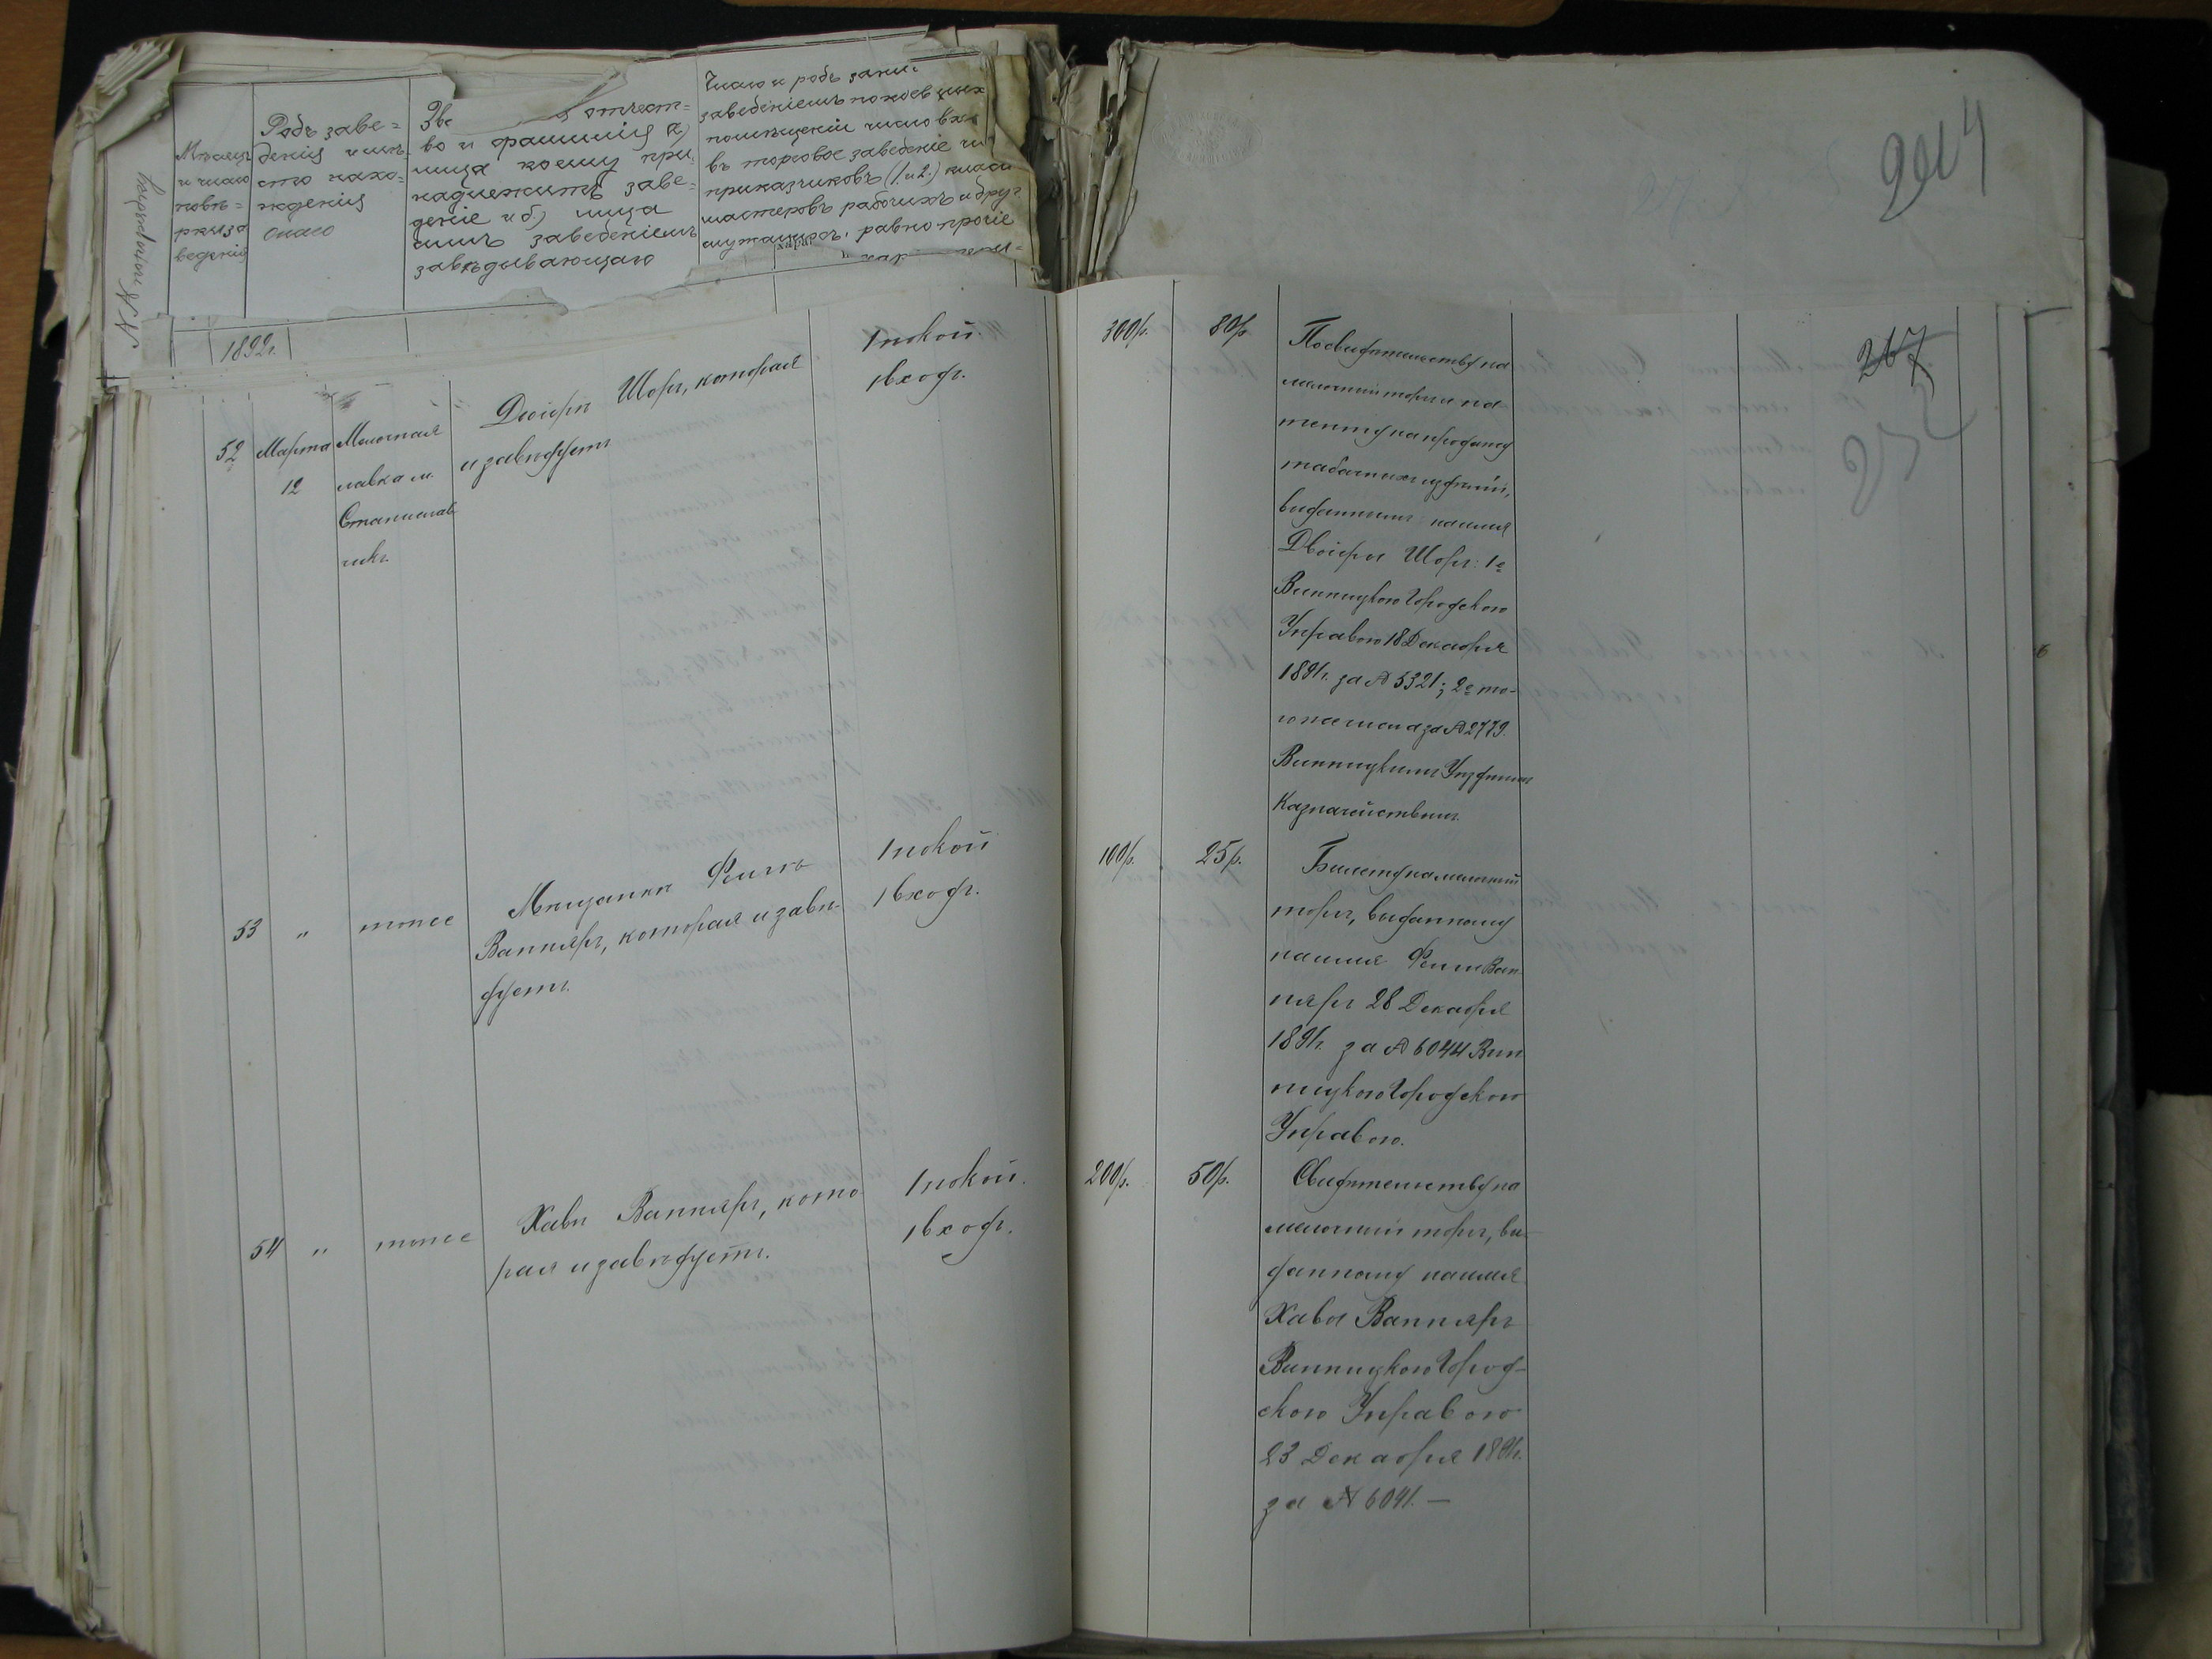 Мѣсяцъ
и число
повѣ=
рки за
веденій
Родъ заве=
денія и мѣ=
сто нахо=
жденія
онаго
отчест=
во и фамилія а)
лица коему при
надлежитъ заве=
деніе и б) лица
симъ заведеніемъ
завѣдывающаго
Число и родъ
заведеніемъ покоевъ
помѣщеній число
въ торговое заведеніе
приказчиковъ (1 и 2) класс
мастеровъ рабочихъ и друг
служащихъ, равно прочіе
1892г.
52
Марта
12
Мелочная
лавка м.
Станислав
чикъ.
Двойра Шоръ, которая
и завѣдуетъ
1 покой.
1 входъ.
300р.
80р.
По свидѣтельству на
мелочный торгъ и па
тенту на продажу
табачныхъ издѣлій,
выданнымъ на имя
Двойры Шоръ: 1е
Винницкою Городскою
Управою 18 Декабря
1891г. за № 5321; 2е то-
го же числа за № 2779.
Винницкимъ Уѣзднымъ
Казначействомъ.
53
"
тоже
Мѣщанка Фейга
Вапняръ, которая и завѣ-
дуетъ.
1 покой
1 входъ.
100р.
25р.
Билету на мелочный
торгъ, выданному
на имя Фейги Вап
няръ 28 Декабря
1891г. за № 6044 Вин
ницкою Городскою
Управою.
54
"
тоже
Хава Вапняръ, кото
рая и завѣдуетъ.
1 покой.
1 входъ.
200р.
50р.
Свидѣтельству на
мелочный торгъ, вы-
данному на имя
Хавы Вапняръ
Винницкою Город-
скою Управою
23 Декабря 1891г.
за № 6041. —
267